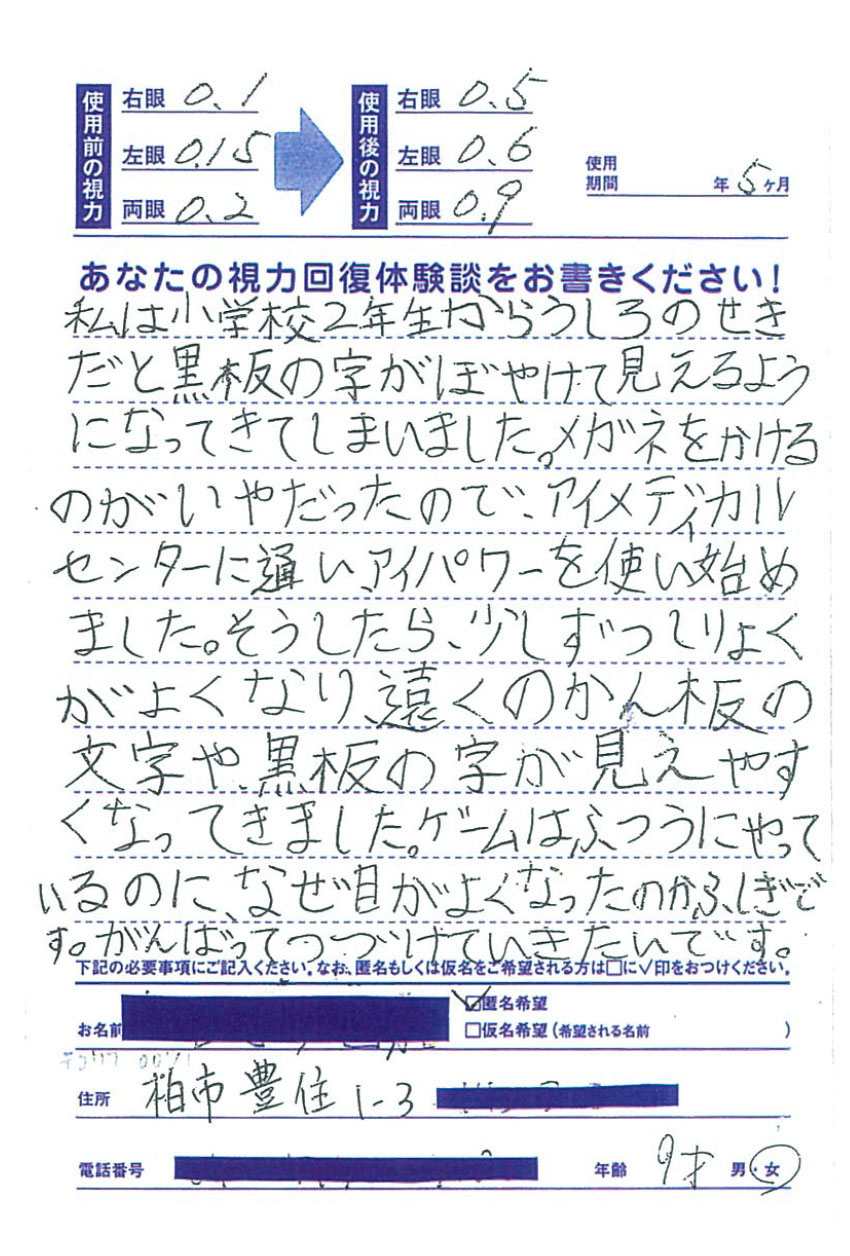 使用前の視力
右眼 0.1
左眼 0.15
両眼 0.2
使用後の視力
右眼 0.5
左眼 0.6
両眼 0.9
使用期間 年 5ヶ月
あなたの視力回復体験談をお書きください!
私は小学校2年生からうしろのせき
だと黒板の字がぼやけて見えるよう
になってきてしまいました。メガネをかける
のがいやだったので、アイメディカル
センターに通い、アイパワーを使い始め
ました。そうしたら、少しずつしりょく
がよくなり、遠くのかん板の
文字や、黒板の字が見えやす
くなってきました。ゲームはふつうにやって
いるのに、なぜ目がよくなったのかふしぎで
す。がんばってつづけていきたいです。
下記の必要事項にご記入ください。なお、匿名もしくは仮名をご希望される方は□に✓印をおつけください。
お名前 ☑匿名希望
□仮名希望(希望される名前 )
住所 柏市豊住1-3
電話番号 年齢 9才 男・女